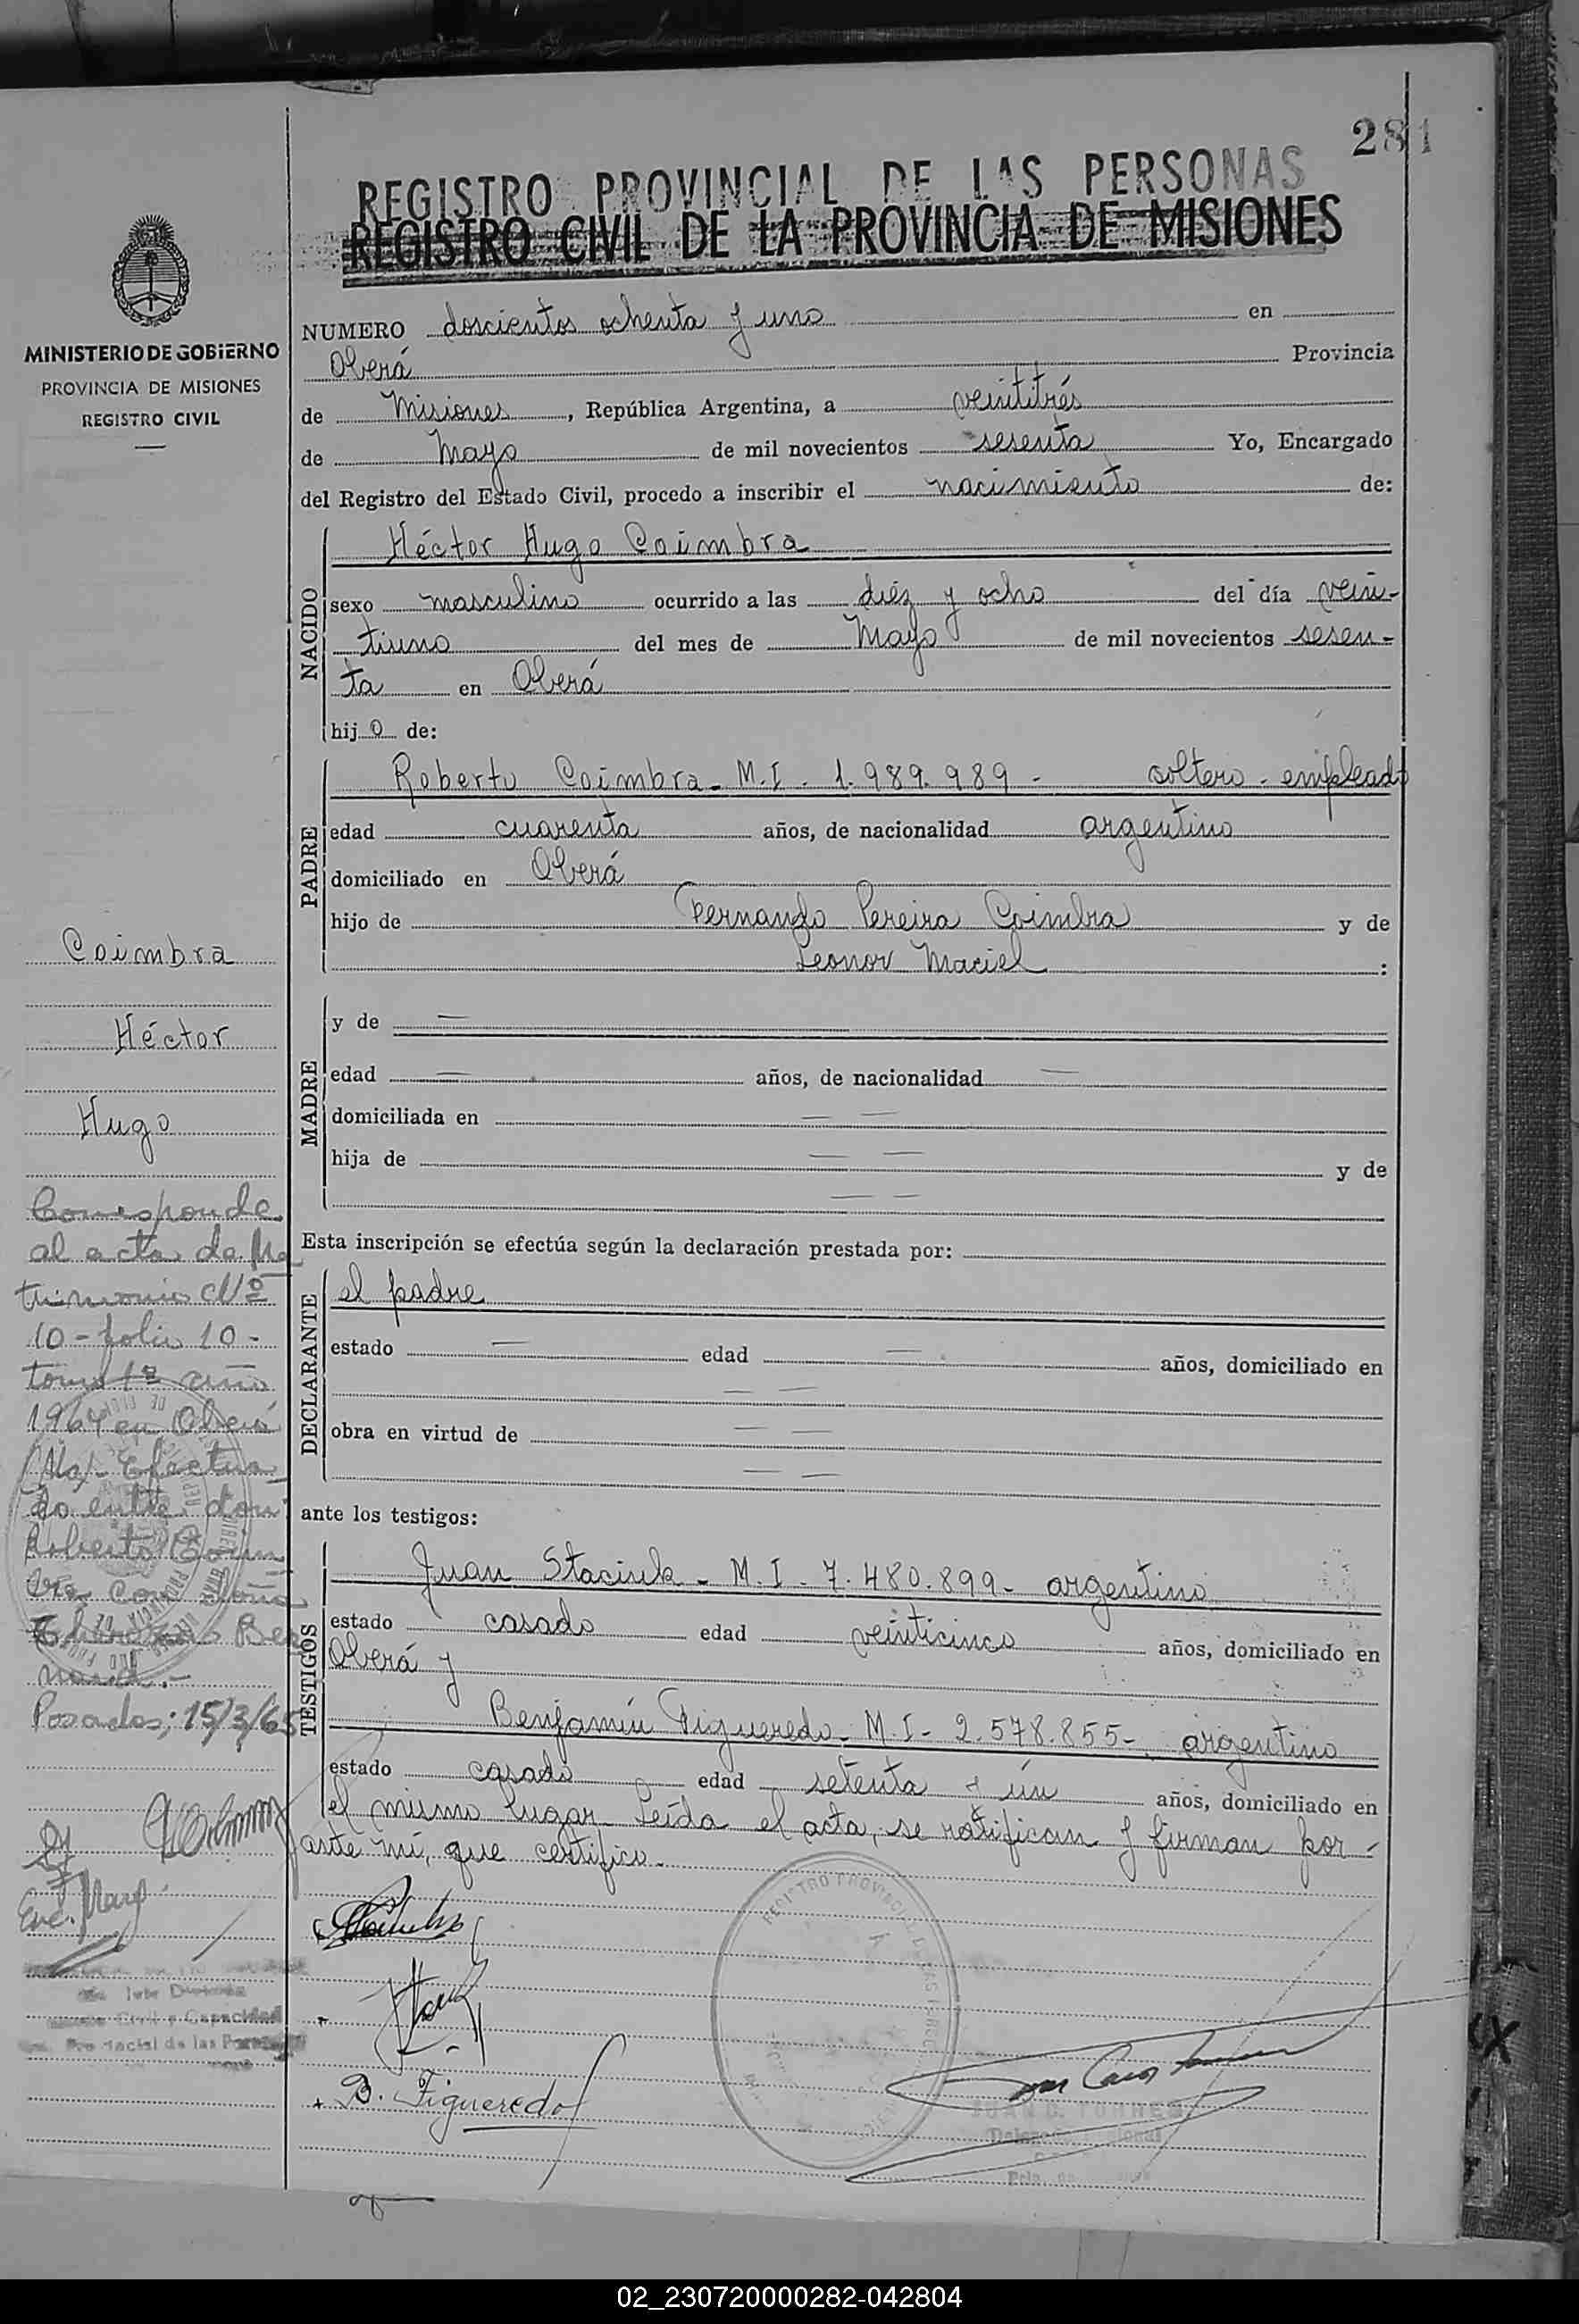 281
REGISTRO PROVINCIAL DE LAS PERSONAS
REGISTRO CIVIL DE LA PROVINCIA DE MISIONES
MINISTERIO DE GOBIERNO
PROVINCIA DE MISIONES
REGISTRO CIVIL
NUMERO doscientos ochenta y uno en
Oberá Provincia
de Misiones, República Argentina, a veintitrés
de Mayo de mil novecientos sesenta Yo, Encargado
del Registro del Estado Civil, procedo a inscribir el nacimiento de:
NACIDO
Héctor Hugo Coimbra
sexo masculino ocurrido a las diéz y ocho del día vein-
tiuno del mes de Mayo de mil novecientos sesen-
ta en Oberá
hijo de:
PADRE
Roberto Coimbra - M.I. 1.989.989 - soltero - empleado
edad cuarenta años, de nacionalidad argentino
domiciliado en Oberá
hijo de Fernando Pereira Coimbra y de
Leonor Maciel :
MADRE
y de —
edad — años, de nacionalidad —
domiciliada en — —
hija de — — y de
— —
Esta inscripción se efectúa según la declaración prestada por:
DECLARANTE
el padre
estado — edad — años, domiciliado en
— —
obra en virtud de — —
— —
ante los testigos:
TESTIGOS
Juan Staciuk - M.I. 7.480.899 - argentino
estado casado edad veinticinco años, domiciliado en
Oberá y
Benjamín Figueredo - M.I - 2.578.855 - argentino
estado casado edad setenta y ún años, domiciliado en
el mismo lugar. Leída el acta, se ratifican y firman por-
ante mí, que certifico.
B. Figueredo
Coimbra
Héctor
Hugo
Corresponde
al acta de Ma
trimonio Nº
10 - folio 10 -
tomo 1º año
1964 en Oberá
Mo/- Efectua
do entre don
Roberto Coim
bra con doña
Ber
nard.-
Posadas; 15/3/65
Civil y Capacidad
Provincial de las Personas
JUAN C. TORRES
02_230720000282-042804